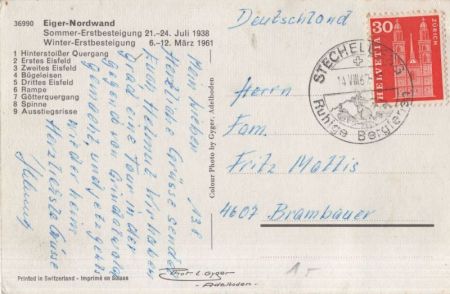 36990 Eiger-Nordwand
Sommer-Erstbesteigung 21.-24. Juli 1938
Winter-Erstbesteigung 6.-12. März 1961
1 Hinterstoißer Quergang
2 Erstes Eisfeld
3 Zweites Eisfeld
4 Bügeleisen
5 Drittes Eisfeld
6 Rampe
7 Götterquergang
8 Spinne
9 Ausstiegsrisse
Mein Lieben
Herzliche Grüsse sendet
Euch Helmut. Wir haben
grad eine Tour in der
Gegend von Grindelwald
gemacht, und
wieder heim
Herzlichste Grüsse
Helmut
Printed in Switzerland - Imprimé en Suisse
Colour Photo by Gyger, Adelboden
Phot. E. Gyger
- Adelboden -
Deutschland
STECHELBERG
14.VIII.6
Ruhige Bergler
30
HELVETIA
ZÜRICH
Herrn
Fam.
Fritz Mattis
4607 Brambauer